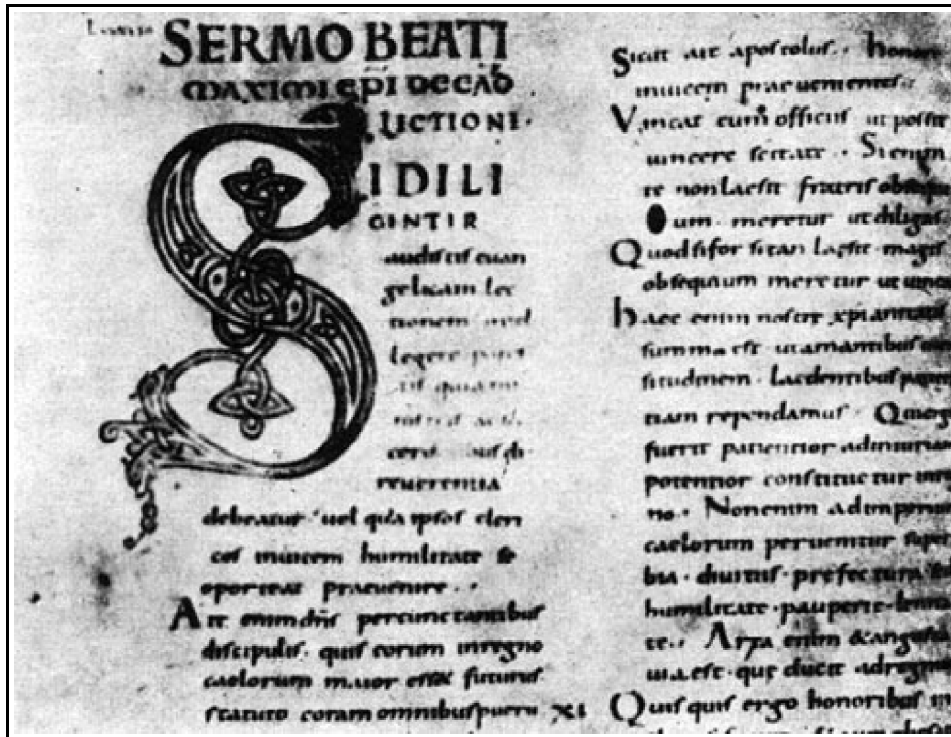 SERMO BEATI
MAXIMI EPI DE CAP
LUCTIONI·
SIDILI
GINTIR
audistis euan
gelicam lec
tionem
legere
reuerentia
debeatur· uel qua ipsos cleri
cos inuicem humilitate se
oporteat praeuenire··
Ait enim dn̄s percunctantibus
discipulis· quis eorum inregno
caelorum maior esset futurus
statuto coram omnibus puero xi
Sicut ait apostolus·· honore
inuicem praeuenientes
Vincat eum officiis ut possit
uincere Si enim
te non laesit fratris
um· meretur ut diligas
Quod si forsitan laesit· magis
obsequium meretur ut
haec enim nostre xpianitatis
summa est ut amantibus
situdinem· Lacdentibus
tiam rependamus· Quisq
fuerit patientior ad iniuriam
potentior constituetur in
no· Non enim ad
caelorum peruenitur
bia· diuitiis· prefectura
humilitate· pauperte·
te·· Arta enim & angus
uia est· quę ducit ad regnu
Quisquis ergo honoribus